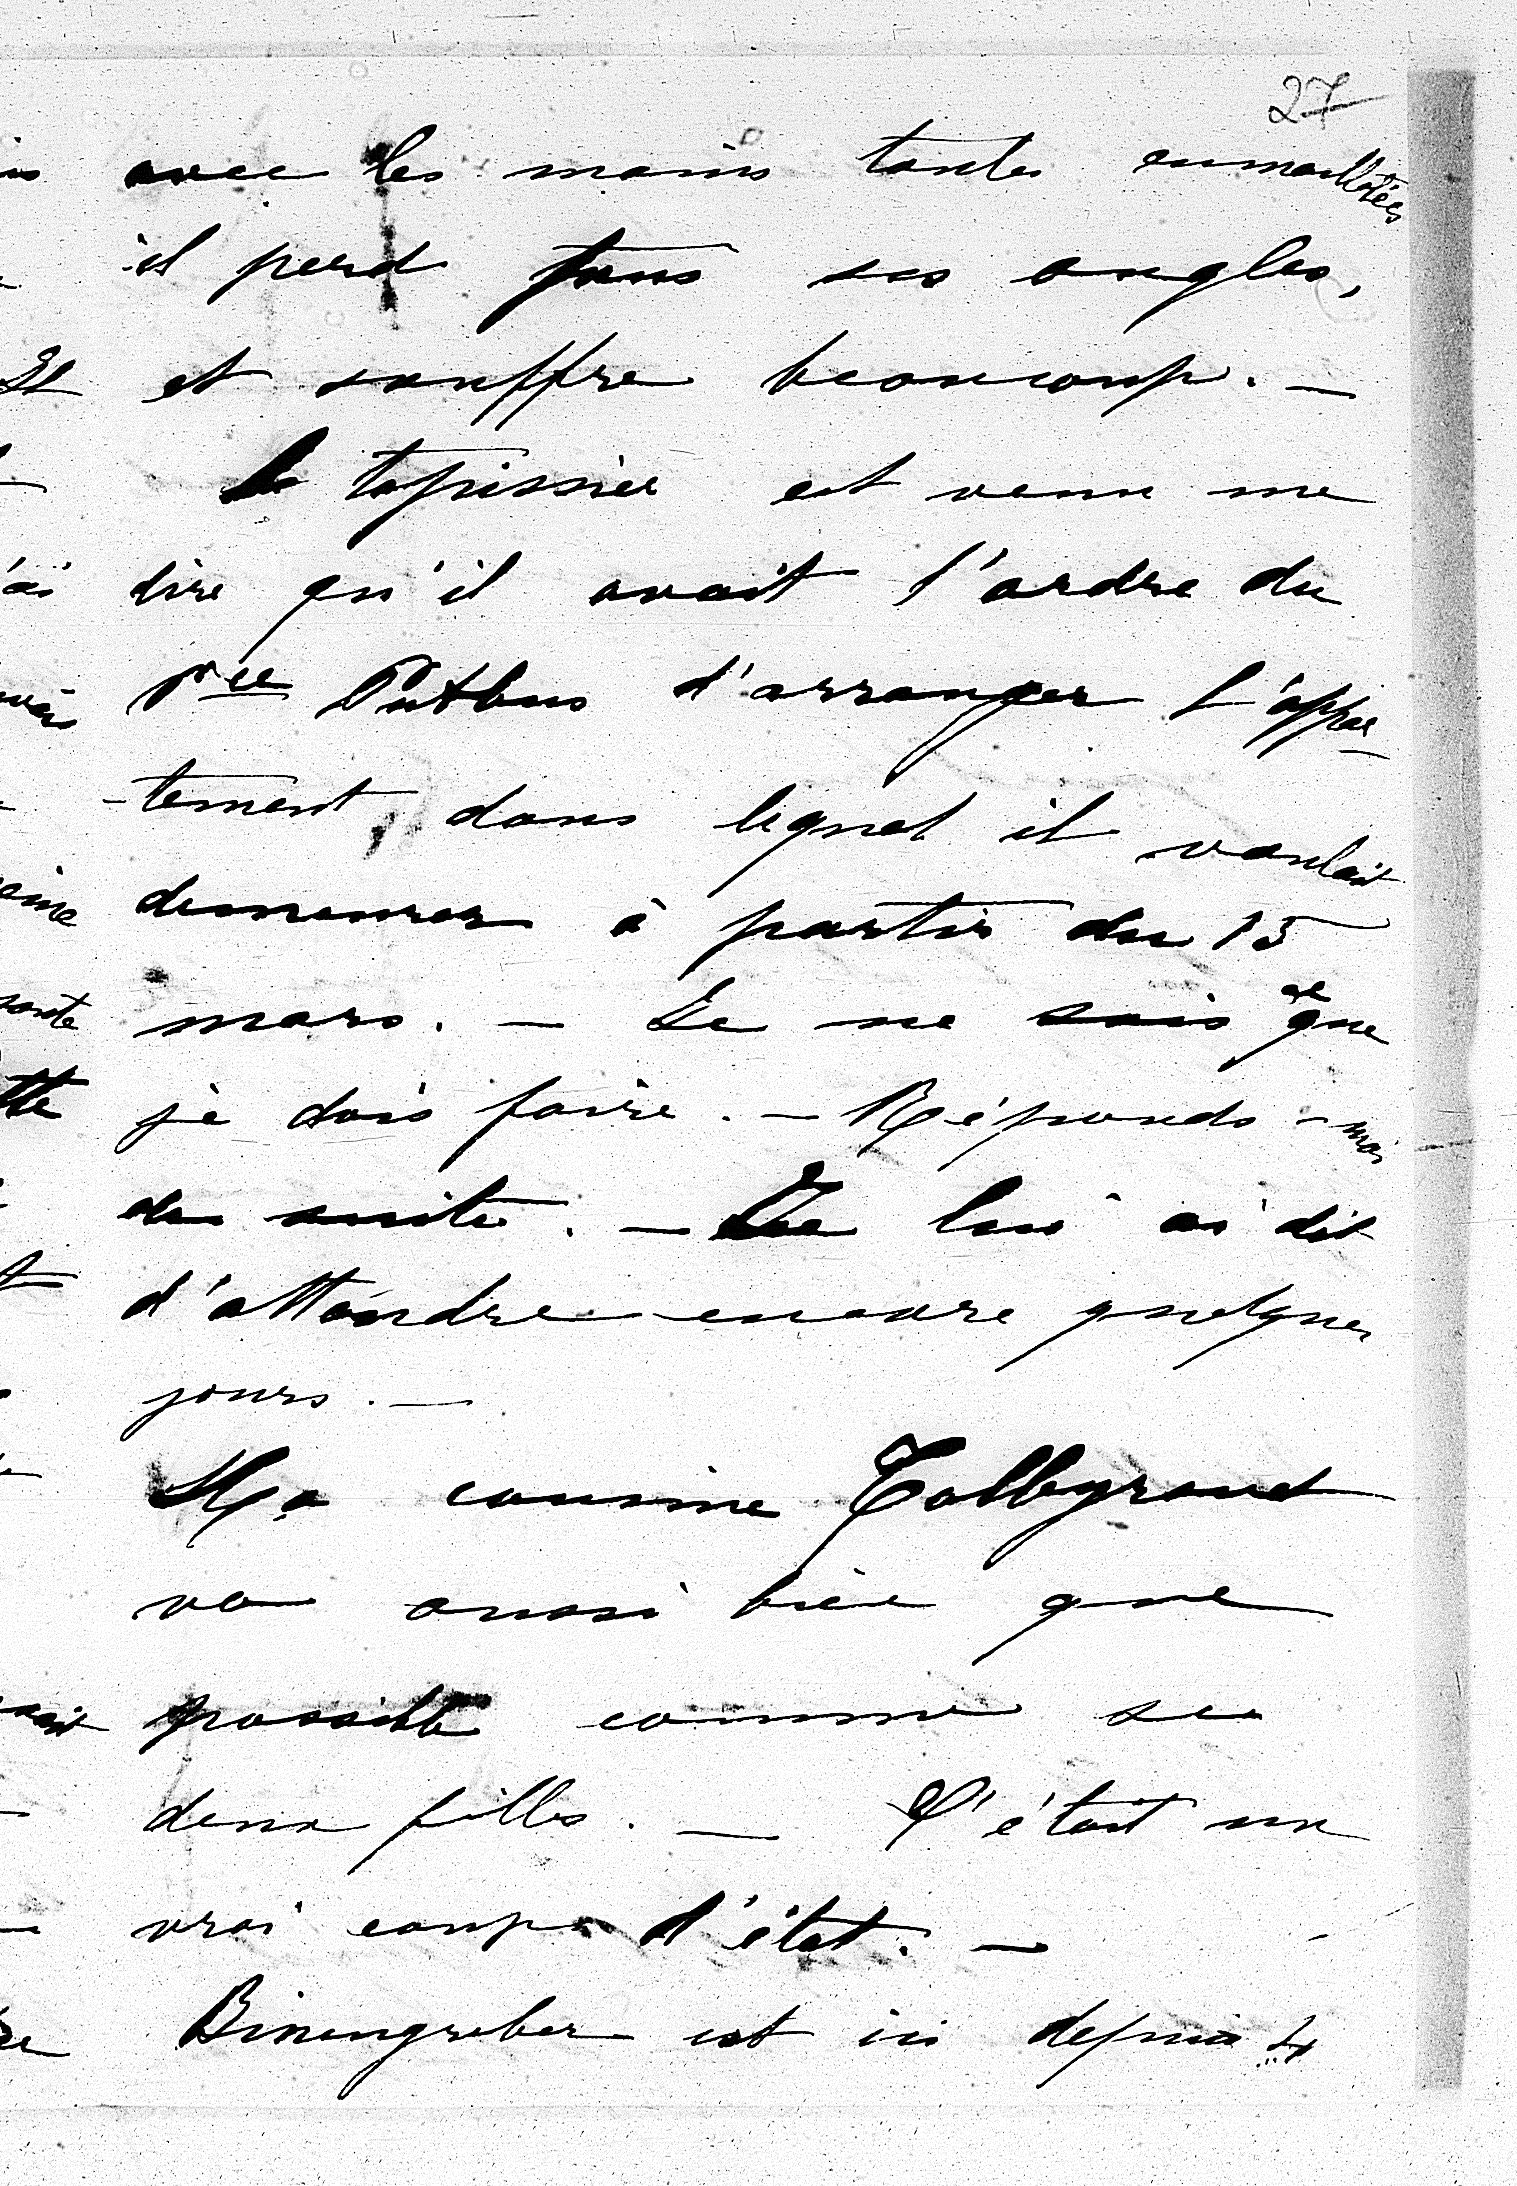 27
avec les mains toutes enmaillotées
il perd tous ses ongles,
et souffre beaucoup. —
le tapissier est venu me
dire qu'il avait l'ordre du
Pce Putbus d'arranger l'appar-
-tement dans lequel il voulait
demeurer à partir du 15
mars. — Je ne sais ce que
je dois faire. — Réponds-moi
de suite. — Je lui ai dit
d'attendre encore quelques
jours. —
Ma cousine
va aussi bien que
possible comme ses
deux filles. — C'était un
vrai coup d'état. —
est ici depuis